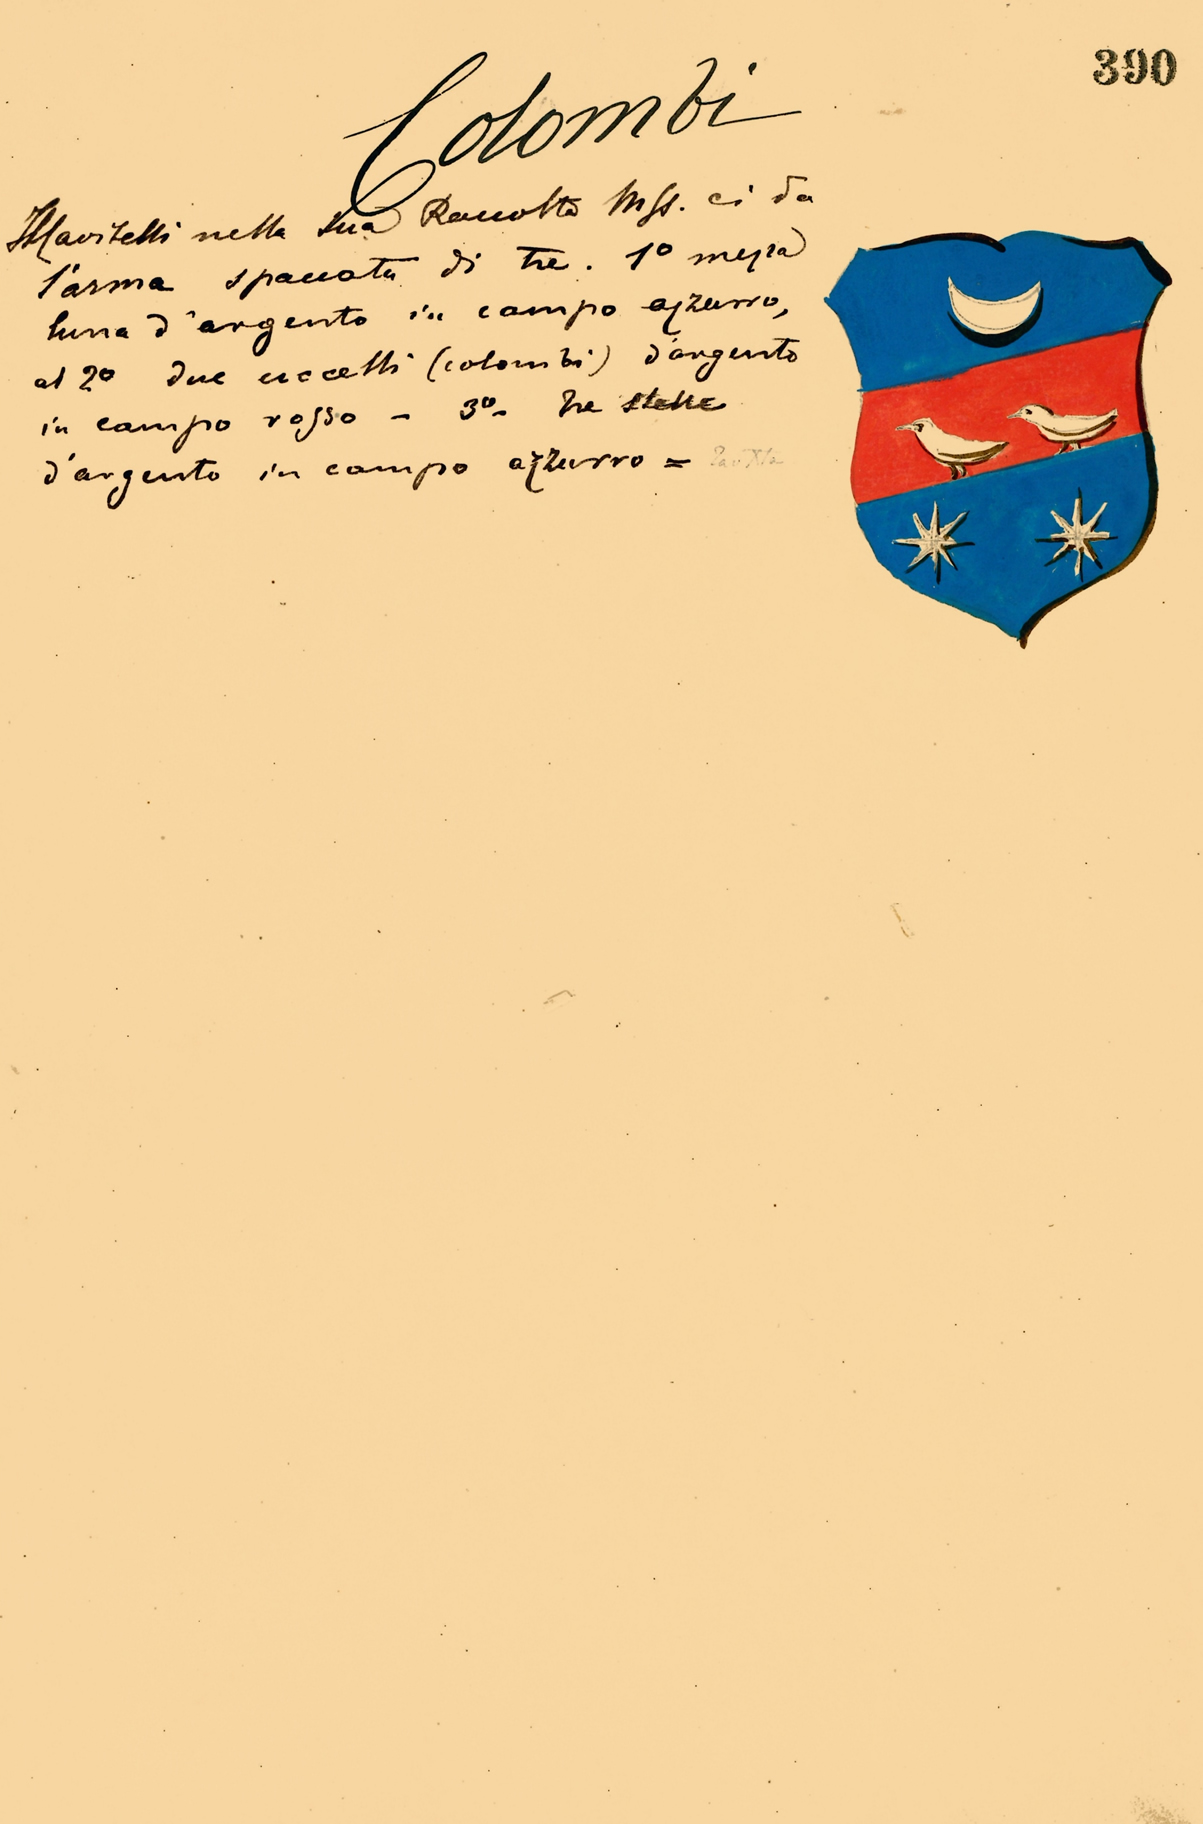 390
Colombi
Il Mavitelli nella sua Raccolta Mss. ci da
l'arma spaccata di tre. 1º mezza
luna d'argento in campo azzurro,
al 2º due uccelli (colombi) d'argento
in campo rosso – 3º– tre stelle
d'argento in campo azzurro =